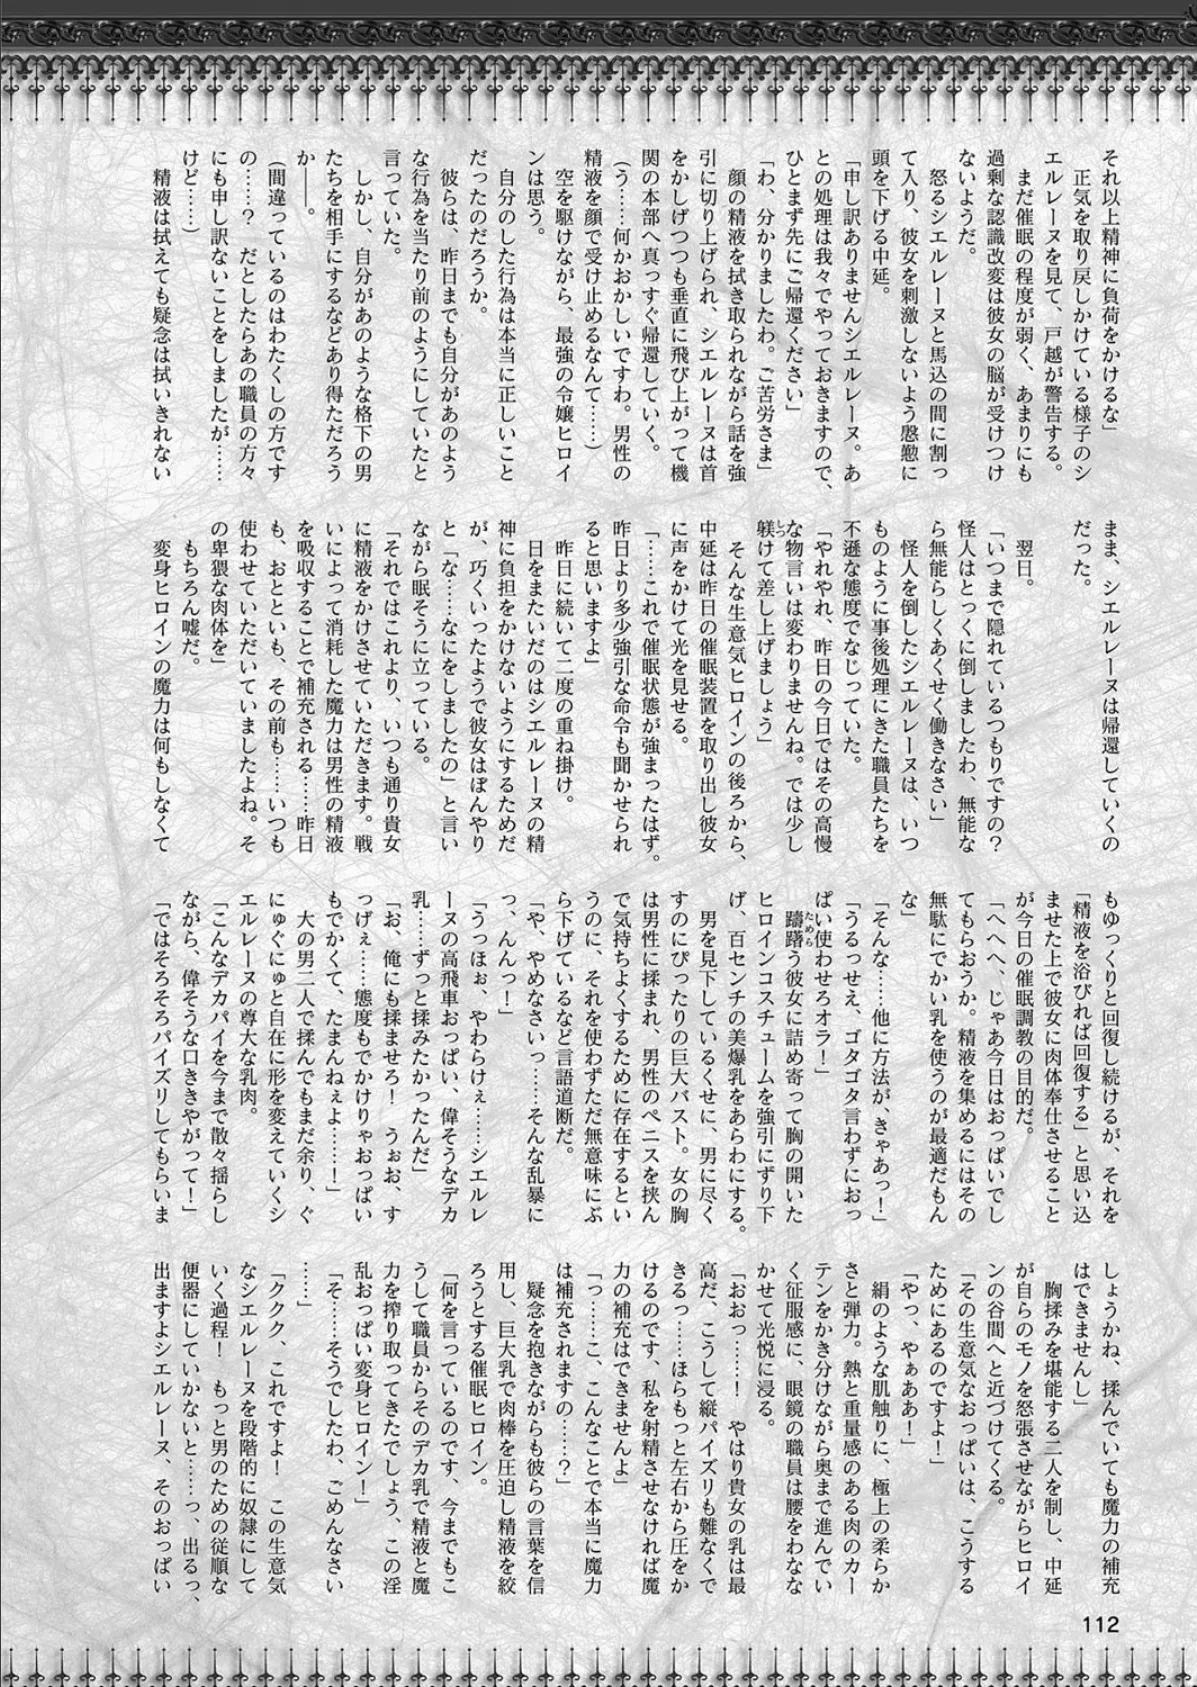 それ以上精神に負荷をかけるな」
　正気を取り戻しかけている様子のシ
エルレーヌを見て、戸越が警告する。
　まだ催眠の程度が弱く、あまりにも
過剰な認識改変は彼女の脳が受けつけ
ないようだ。
　怒るシエルレーヌと馬込の間に割っ
て入り、彼女を刺激しないよう慇懃に
頭を下げる中延。
「申し訳ありませんシエルレーヌ。あ
との処理は我々でやっておきますので、
ひとまず先にご帰還ください」
「わ、分かりましたわ。ご苦労さま」
　顔の精液を拭き取られながら話を強
引に切り上げられ、シエルレーヌは首
をかしげつつも垂直に飛び上がって機
関の本部へ真っすぐ帰還していく。
（う……何かおかしいですわ。男性の
精液を顔で受け止めるなんて……）
　空を駆けながら、最強の令嬢ヒロイ
ンは思う。
　自分のした行為は本当に正しいこと
だったのだろうか。
　彼らは、昨日までも自分があのよう
な行為を当たり前のようにしていたと
言っていた。
　しかし、自分があのような格下の男
たちを相手にするなどあり得ただろう
か――。
（間違っているのはわたくしの方です
の……？　だとしたらあの職員の方々
にも申し訳ないことをしましたが……
けど……）
　精液は拭えても疑念は拭いきれない
まま、シエルレーヌは帰還していくの
だった。
　翌日。
「いつまで隠れているつもりですの？
怪人はとっくに倒しましたわ、無能な
ら無能らしくあくせく働きなさい」
　怪人を倒したシエルレーヌは、いつ
ものように事後処理にきた職員たちを
不遜な態度でなじっていた。
「やれやれ、昨日の今日ではその高慢
な物言いは変わりませんね。では少し
躾けて差し上げましょう」
　そんな生意気ヒロインの後ろから、
中延は昨日の催眠装置を取り出し彼女
に声をかけて光を見せる。
「……これで催眠状態が強まったはず。
昨日より多少強引な命令も聞かせられ
ると思いますよ」
　昨日に続いて二度の重ね掛け。
　日をまたいだのはシエルレーヌの精
神に負担をかけないようにするためだ
が、巧くいったようで彼女はぼんやり
と「な……なにをしましたの」と言い
ながら眠そうに立っている。
「それではこれより、いつも通り貴女
に精液をかけさせていただきます。戦
いによって消耗した魔力は男性の精液
を吸収することで補充される……昨日
も、おとといも、その前も……いつも
使わせていただいていましたよね。そ
の卑猥な肉体を」
　もちろん嘘だ。
　変身ヒロインの魔力は何もしなくて
もゆっくりと回復し続けるが、それを
「精液を浴びれば回復する」と思い込
ませた上で彼女に肉体奉仕させること
が今日の催眠調教の目的だ。
「へへへ、じゃあ今日はおっぱいでし
てもらおうか。精液を集めるにはその
無駄にでかい乳を使うのが最適だもん
な」
「そんな……他に方法が、きゃあっ！」
「うるっせえ、ゴタゴタ言わずにおっ
ぱい使わせろオラ！」
　躊躇う彼女に詰め寄って胸の開いた
ヒロインコスチュームを強引にずり下
げ、百センチの美爆乳をあらわにする。
　男を見下しているくせに、男に尽く
すのにぴったりの巨大バスト。女の胸
は男性に揉まれ、男性のペニスを挟ん
で気持ちよくするために存在するとい
うのに、それを使わずただ無意味にぶ
ら下げているなど言語道断だ。
「や、やめなさいっ……そんな乱暴に
っ、んんっ！」
「うっほぉ、やわらけぇ……シエルレ
ーヌの高飛車おっぱい、偉そうなデカ
乳……ずっと揉みたかったんだ」
「お、俺にも揉ませろ！　うぉお、す
っげぇ……態度もでかけりゃおっぱい
もでかくて、たまんねぇよ……！」
　大の男二人で揉んでもまだ余り、ぐ
にゅぐにゅと自在に形を変えていくシ
エルレーヌの尊大な乳肉。
「こんなデカパイを今まで散々揺らし
ながら、偉そうな口ききやがって！」
「ではそろそろパイズリしてもらいま
しょうかね、揉んでいても魔力の補充
はできませんし」
　胸揉みを堪能する二人を制し、中延
が自らのモノを怒張させながらヒロイ
ンの谷間へと近づけてくる。
「その生意気なおっぱいは、こうする
ためにあるのですよ！」
「やっ、やぁああ！」
　絹のような肌触りに、極上の柔らか
さと弾力。熱と重量感のある肉のカー
テンをかき分けながら奥まで進んでい
く征服感に、眼鏡の職員は腰をわなな
かせて光悦に浸る。
「おおっ……！　やはり貴女の乳は最
高だ、こうして縦パイズリも難なくで
きるっ……ほらもっと左右から圧をか
けるのです、私を射精させなければ魔
力の補充はできませんよ」
「っ……こ、こんなことで本当に魔力
は補充されますの……？」
　疑念を抱きながらも彼らの言葉を信
用し、巨大乳で肉棒を圧迫し精液を絞
ろうとする催眠ヒロイン。
「何を言っているのです、今までもこ
うして職員からそのデカ乳で精液と魔
力を搾り取ってきたでしょう、この淫
乱おっぱい変身ヒロイン！」
「そ……そうでしたわ、ごめんなさい
……」
「ククク、これですよ！　この生意気
なシエルレーヌを段階的に奴隷にして
いく過程！　もっと男のための従順な
便器にしていかないと……っ、出るっ、
出ますよシエルレーヌ、そのおっぱい
112